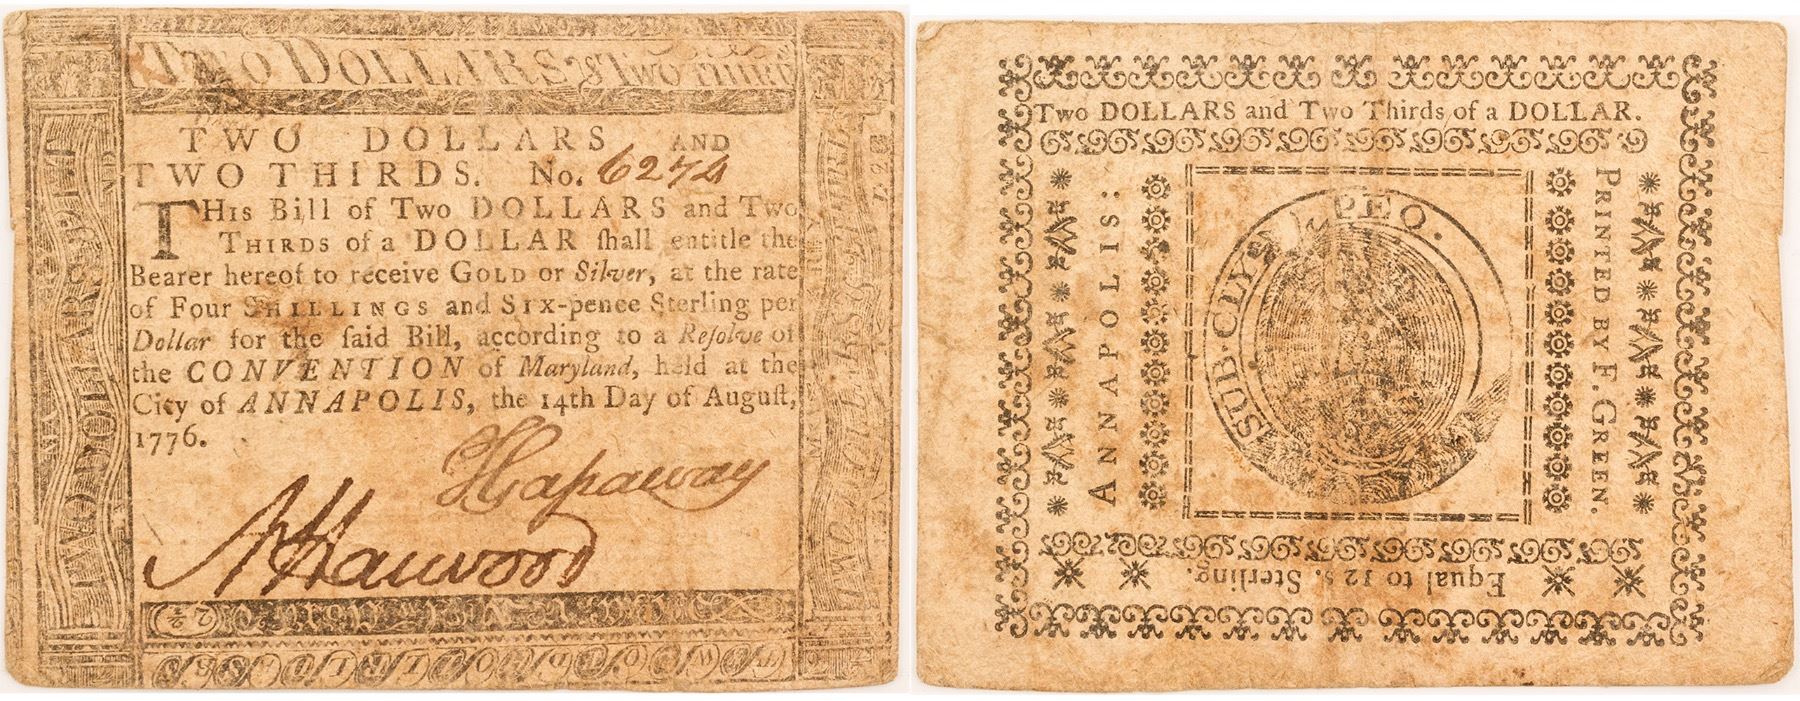 TWO DOLLARS & TWO THIRD
TWO DOLLARS AND
TWO THIRDS. No. 6274
THIS Bill of Two DOLLARS and Two
THIRDS of a DOLLAR ſhall entitle the
Bearer hereof to receive GOLD or Silver, at the rate
of Four SHILLINGS and SIX-pence Sterling per
Dollar for the ſaid Bill, according to a Reſolve of
the CONVENTION of Maryland, held at the
City of ANNAPOLIS, the 14th Day of Auguſt,
1776.
Hapaway
Harwood
2 2/3
TWO DOLLARS
Two DOLLARS and Two Thirds of a DOLLAR.
ANNAPOLIS:
SUB CLYP PEO.
PRINTED BY F. GREEN.
Equal to 12 s. Sterling.